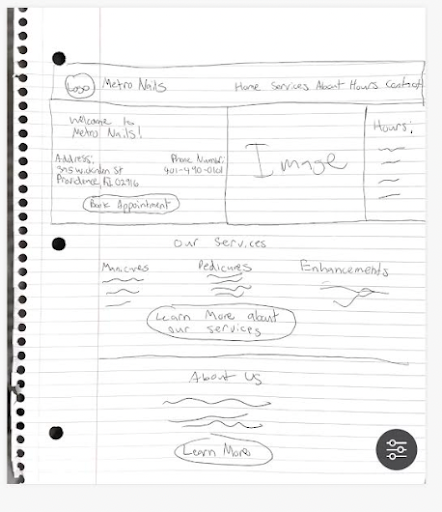 Logo Metro Nails Home Services About Hours Contact
Welcome to
Metro Nails!
Address:
Providence, RI
Phone Number:
Book Appointment
Image
Hours:
Our Services
Manicures Pedicures Enhancements
Learn More about
our services
About Us
Learn More